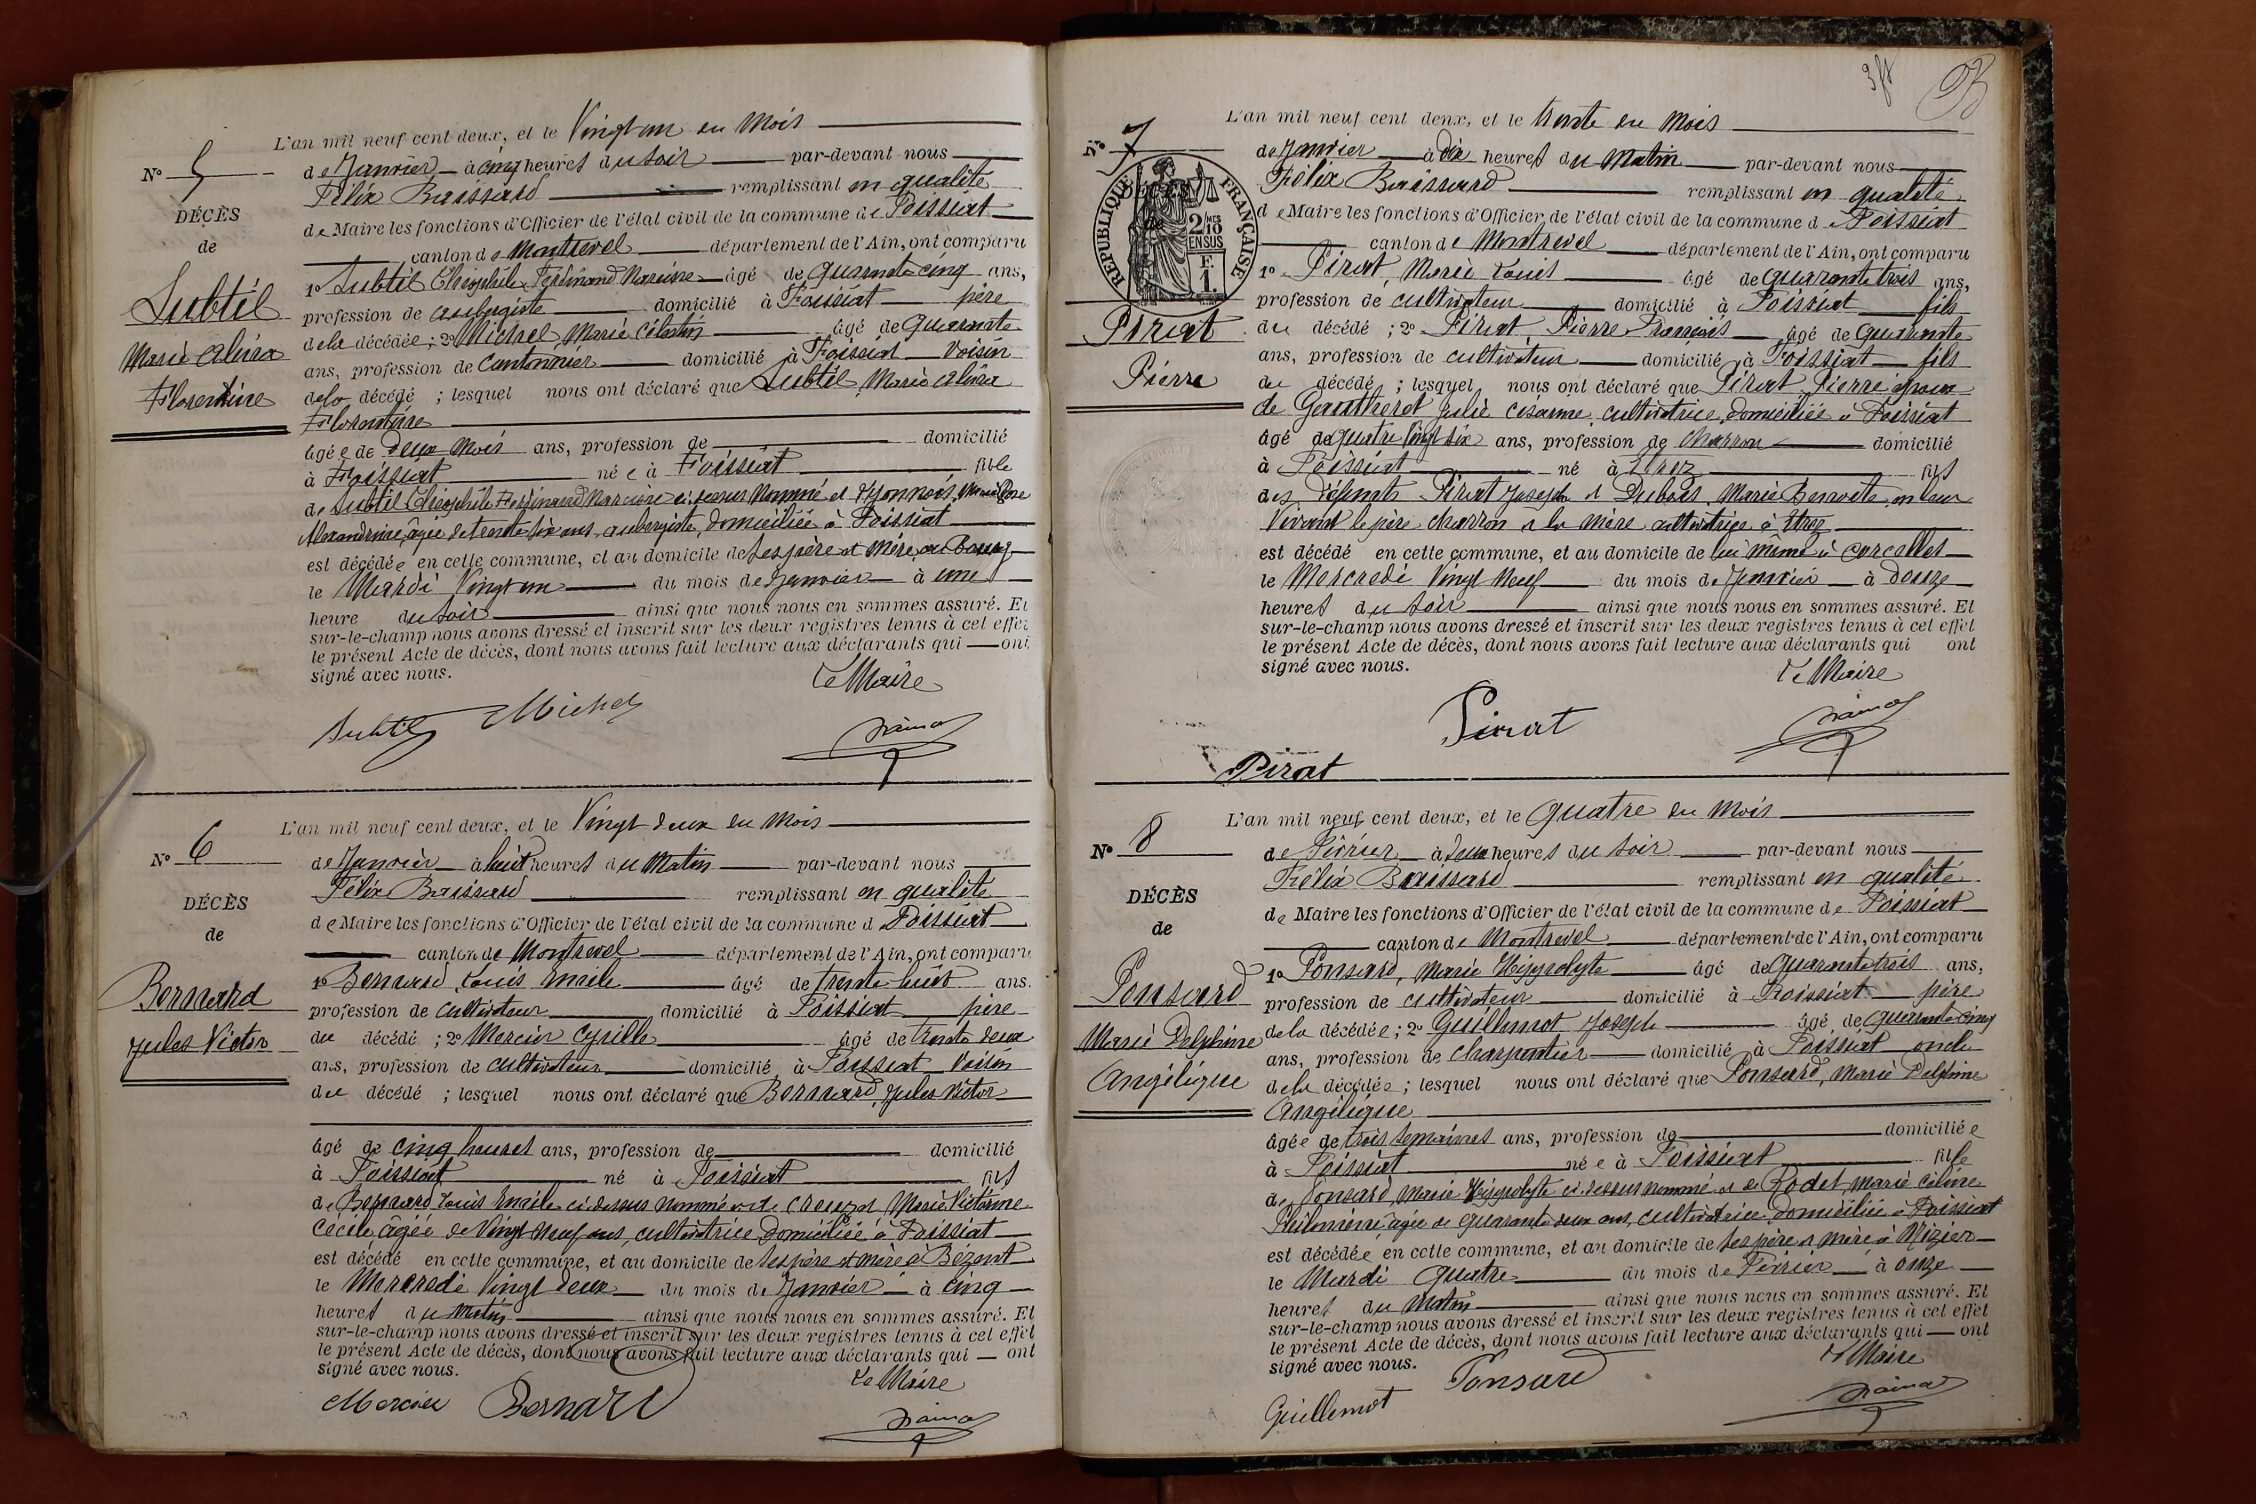 L'an mil neuf cent deux, et le Vingt un du Mois
N° 5
de Janvier à cinq heures du soir par-devant nous
Félix Buissard remplissant en qualité
DÉCÈS
de Maire les fonctions d'Officier de l'état civil de la commune de Foissiat
de
canton de Montrevel département de l'Ain, ont comparu
Subtil
1° Subtil Théophile Ferdinand Narcisse âgé de quarante cinq ans,
profession de aubergiste domicilié à Foissiat père
Marie Alvira
de la décédée ; 2° Michel, Marie Célestin âgé de quarante
ans, profession de Cantonnier domicilié à Foissiat voisin
Florentine
de la décédé ; lesquel nous ont déclaré que Subtil, Marie Alvira
Florentine
âgée de deux mois ans, profession de domicilié
à Foissiat née à Foissiat fille
de Subtil Théophile Ferdinand Narcisse ci-dessus nommé et
Alexandrine, âgée de trente six ans, aubergiste, domiciliée à Foissiat
est décédée en cette commune, et au domicile de ses père et mère au Bourg
le Mardi Vingt un du mois de Janvier à une
heure du soir ainsi que nous nous en sommes assuré. Et
sur-le-champ nous avons dressé et inscrit sur les deux registres tenus à cet effet
le présent Acte de décès, dont nous avons fait lecture aux déclarants qui ont
signé avec nous.
Le Maire
Subtil Michel
L'an mil neuf cent deux, et le Vingt deux du Mois
N° 6
de Janvier à huit heures du Matin par-devant nous
Félix Buissard remplissant en qualité
DÉCÈS
de Maire les fonctions d'Officier de l'état civil de la commune d Foissiat
de
canton de Montrevel département de l'Ain, ont comparu
Bernard
1° Bernard, Louis Emile âgé de trente huit ans.
profession de cultivateur domicilié à Foissiat père
du décédé ; 2° Mercier Cyrille âgé de trente deux
Jules Victor
ans, profession de cultivateur domicilié à Foissiat Voisin
du décédé ; lesquel nous ont déclaré que Bernard, Jules Victor
âgé de cinq heures ans, profession de domicilié
à Foissiat né à Foissiat fils
de Bernard Louis Emile ci-dessus nommé et de Marie Victorine
Cécile, âgée de Vingt Neuf ans, cultivatrice, domiciliée à Foissiat
est décédé en cette commune, et au domicile de ses père et mère à Bézent
le Mercredi Vingt deux du mois de Janvier à cinq
heures du Matin ainsi que nous nous en sommes assuré. Et
sur-le-champ nous avons dressé et inscrit sur les deux registres tenus à cet effet
le présent Acte de décès, dont nous avons fait lecture aux déclarants qui ont
signé avec nous.
Le Maire
Mercier Bernard
L'an mil neuf cent deux, et le trente du Mois
N° 7
de Janvier à dix heures du Matin par-devant nous
Félix Buissard remplissant en qualité
de Maire les fonctions d'Officier de l'état civil de la commune de Foissiat
REPUBLIQUE FRANÇAISE
2/10 MES
EN SUS
F.
1.
canton de Montrevel département de l'Ain, ont comparu
1° Pirat, Marie Louis âgé de quarante trois ans,
profession de cultivateur domicilié à Foissiat fils
Pirat
du décédé ; 2° Pirat, Pierre François âgé de quarante
ans, profession de cultivateur domicilié à Foissiat fils
Pierre
du décédé ; lesquel nous ont déclaré que Pirat, Pierre époux
de Gautheret Julie Césarine, cultivatrice, domiciliée à Foissiat
âgé de quatre Vingt six ans, profession de charron domicilié
à Foissiat né à Etrez fils
des défunts Pirat Joseph et Dubois, Marie Benoite en leur
Vivant le père charron et la mère cultivatrice à Etrez
est décédé en cette commune, et au domicile de lui même à
le Mercredi Vingt Neuf du mois de Janvier à Douze
heures du soir ainsi que nous nous en sommes assuré. Et
sur-le-champ nous avons dressé et inscrit sur les deux registres tenus à cet effet
le présent Acte de décès, dont nous avons fait lecture aux déclarants qui ont
signé avec nous.
Le Maire
Pirat
Pirat
L'an mil neuf cent deux, et le quatre du Mois
N° 8
de Février à deux heures du soir par-devant nous
Félix Buissard remplissant en qualité
DÉCÈS
de Maire les fonctions d'Officier de l'état civil de la commune de Foissiat
de
canton de Montrevel département de l'Ain, ont comparu
Ponsard
1° Ponsard, Marie Hippolyte âgé de quarante trois ans,
profession de cultivateur domicilié à Foissiat père
Marie Delphine
de la décédée ; 2° Guillemot Joseph âgé de quarante cinq
ans, profession de charpentier domicilié à Foissiat oncle
Angélique
de la décédée ; lesquel nous ont déclaré que Ponsard, Marie Delphine
Angélique
âgée de trois semaines ans, profession de domiciliée
à Foissiat née à Foissiat fille
de Ponsard, Marie Hippolyte ci-dessus nommé et de Rodet, Marie Céline
Philomène, âgée de quarante deux ans, cultivatrice, domiciliée à Foissiat
est décédée en cette commune, et au domicile de ses père et mère à Mizier
le Mardi quatre du mois de Février à onze
heures du Matin ainsi que nous nous en sommes assuré. Et
sur-le-champ nous avons dressé et inscrit sur les deux registres tenus à cet effet
le présent Acte de décès, dont nous avons fait lecture aux déclarants qui ont
signé avec nous.
Le Maire
Guillemot Ponsard